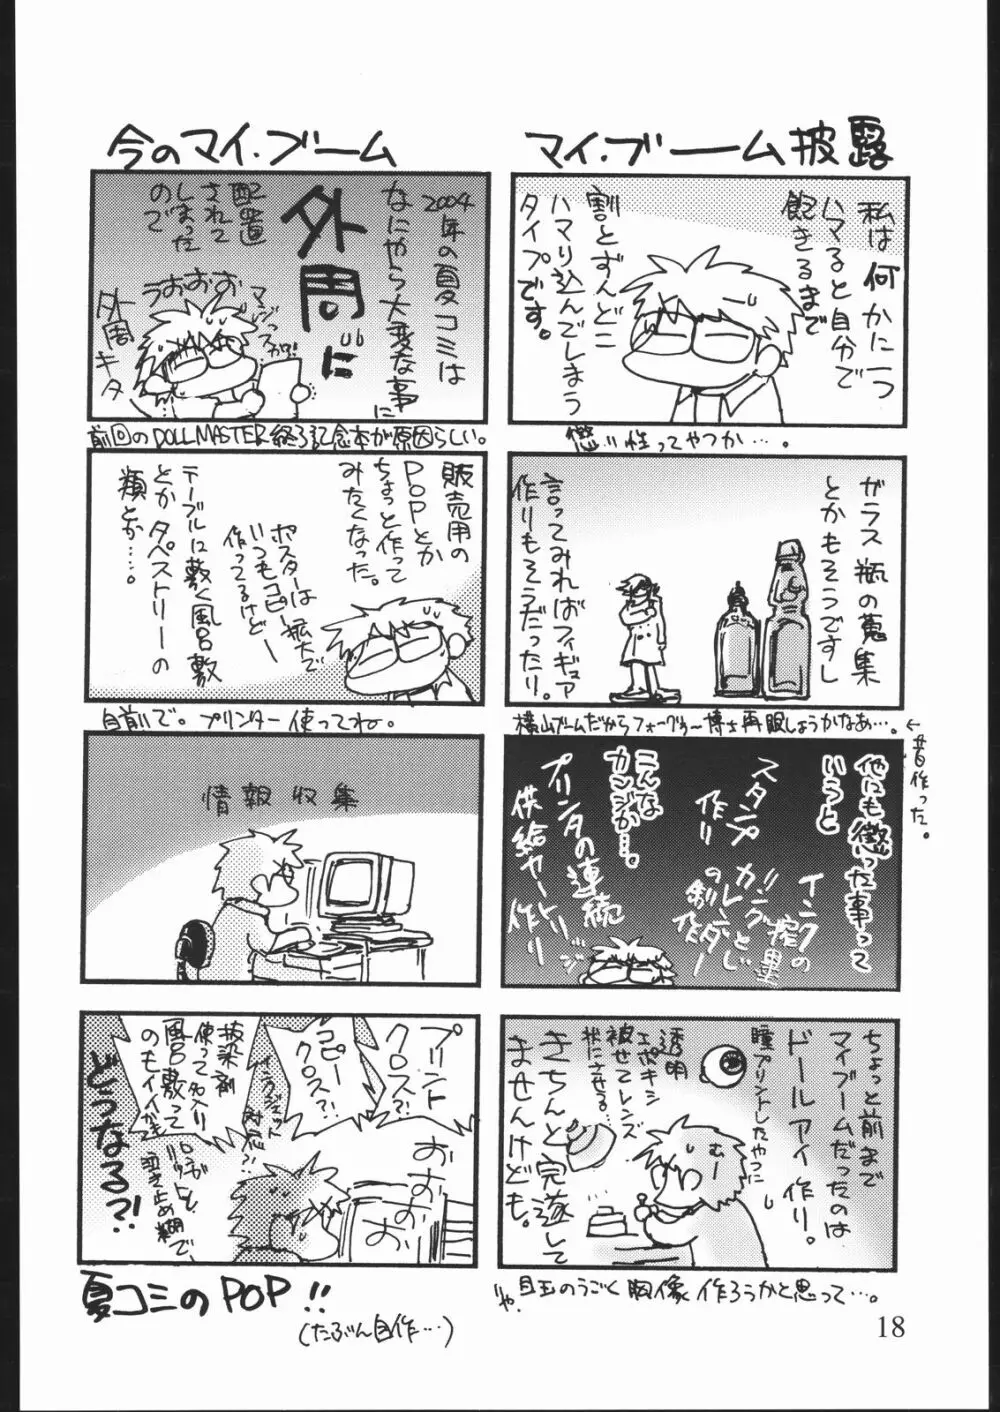 マイ・ブーム披露
私は何かに一つ
ハマると自分で
飽きるまで
割とずんどこ
ハマり込んでしまう
タイプです。
性ってやつか…。
ガラス瓶の蒐集
とかもそうですし
言ってみればフィギュア
作りもそうだったり。
横山ブームだからフォーグラー博士再販しようかなぁ…。
←昔作った。
他にも懲った事って
いうと
インクの
スタンプ
作り
リングとじ
カレンダー
の制作
プリンタの連続
供給カートリッジ
作り
こんな
カンジか…。
ちょっと前まで
マイブームだったのは
ドールアイ作り。
瞳プリントしたやつに
透明
エポキシ
被せてレンズ
状にさせる。
きちんと完遂して
ませんけども。
むー
いや、目玉のうごく胸像作ろうかと思って…。
今のマイ・ブーム
2004
年の夏コミは
なにやら大変な事に
外周に
配置
されて
しまった
ので
うおおお
マジっスか!?
外周キタ
前回のDOLLMASTER終了記念本が原因らしい。
販売用の
POPとか
ちょっと作って
みたくなった。
ポスターは
いつもコピー拡大で
作ってるけどー
テーブルに敷く風呂敷
とかタペストリーの
類とか…。
自前で。プリンター使ってね。
情報収集
プリント
クロス?!
コピー
クロス?!
インクジェット
対応?!
抜染剤
使って名入り
風呂敷って
のもイイかも
どうなる?!
おおおお
夏コミのPOP!!
(たぶん自作…)
18